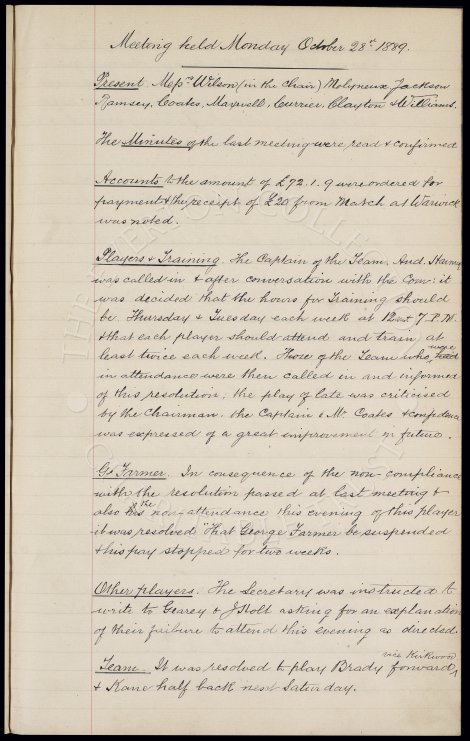 Meeting held Monday October 28th 1889.
Present. Messrs Wilson (in the chair) Molyneux, Jackson
Ramsey, Coates, Maxwell, Currier, Clayton & Williams.
The Minutes of the last meeting were read & confirmed
Accounts to the amount of £72.1.9 were ordered for
payment & the receipt of £20 from Match at Warwick
was noted.
Players & Training. The Captain of the Team, And. Hannay
was called in & after conversation with the Com: it
was decided that the hours for training should
be Thursday & Tuesday each week at 7 P.M.
& that each player should attend and train at
least twice each week. Those of the Team who were
in attendance were then called in and informed
of this resolution; the play of late was criticised
by the Chairman, the Captain & Mr Coates & confidence
was expressed of a great improvement in future.
Geo Farmer. In consequence of the non-compliance
with the resolution passed at last meeting &
also the non-attendance this evening of this player
it was resolved "That George Farmer be suspended
& his pay stopped for two weeks.
Other players. The Secretary was instructed to
write to Gearey & J Holt asking for an explanation
of their failure to attend this evening as directed.
vice Kirkwood
Team. It was resolved to play Brady forward
& Kane half back next Saturday.